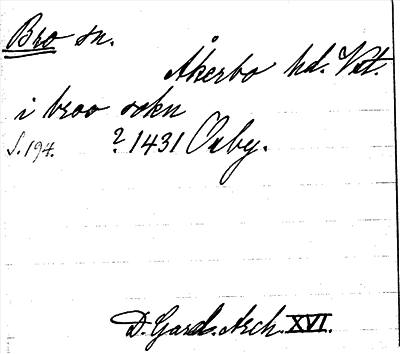 Bro sn.
Åkerbo hd. Vstm.
i broo sokn
S. 194. ? 1431 Oxby.
D. Gard. Arch. XVI.